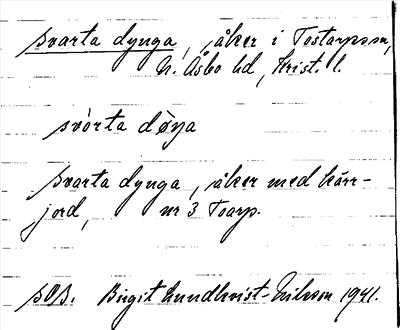 svarta dynga, åker i Tostarps sn,
N. Åsbo hd, Krist. l.
svòrta dø̀ŋa
Svarta dynga, åker med kärr-
jord, nr 3 Toarp.
SOB. Birgit Lundkvist-Nilsson 1941.